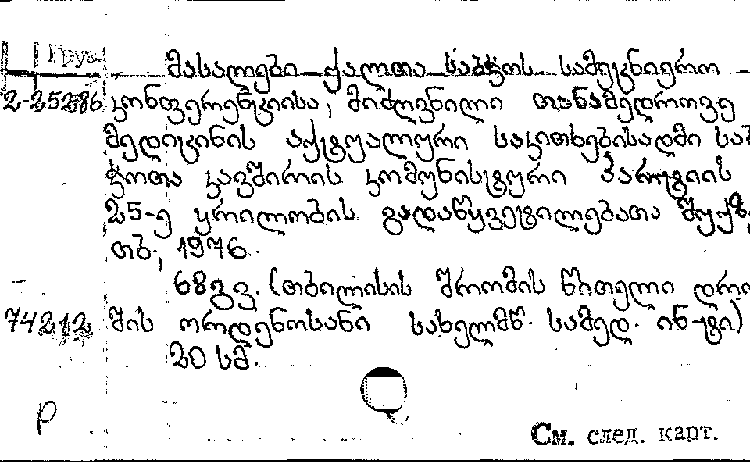 Груз
მასალები ქალთა საბჭოს სამეცნიერო
2-25286 კონფერენციისა, მიძღვნილი თანამედროვე
მედიცინის აქტუალური საკითხებისადმი საბ
ჭოთა კავშირის კომუნისტური პარტიის
25-ე ყრილობის გადაწყვეტილებათა შუქზე,
თბ., 1976.
68 გვ. (თბილისის შრომის წითელი დრო
74212 შის ორდენოსანი სახელმწ. სამედ. ინ-ტი)
20 სმ.
р
См. след. карт.